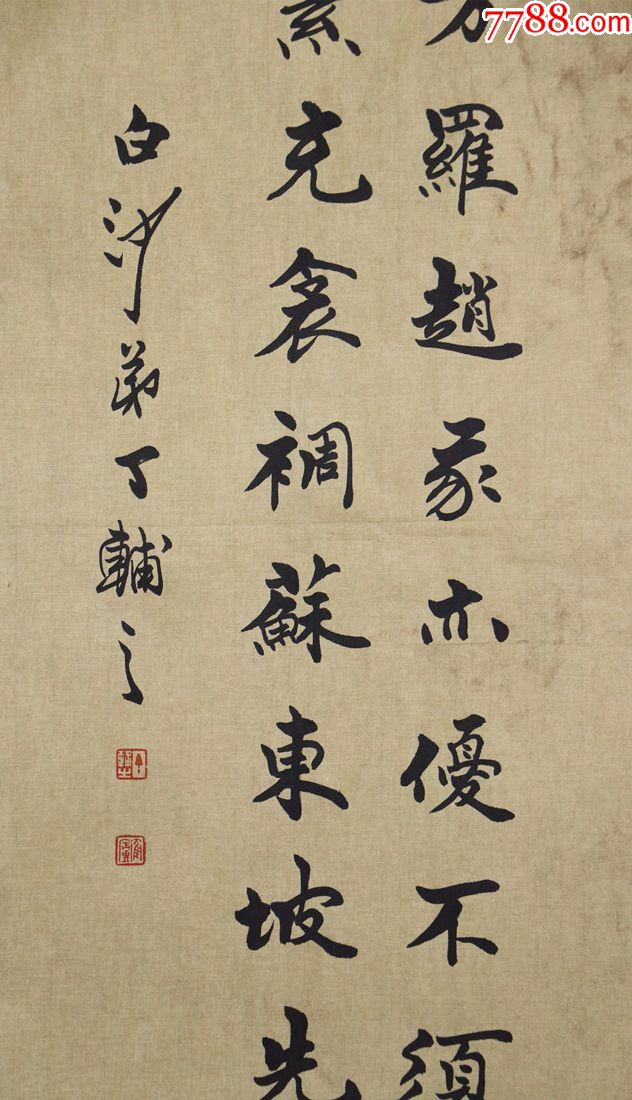 7788.com
方羅趙我亦優不須
素充衾裯蘇東坡先
白沙弟丁輔之